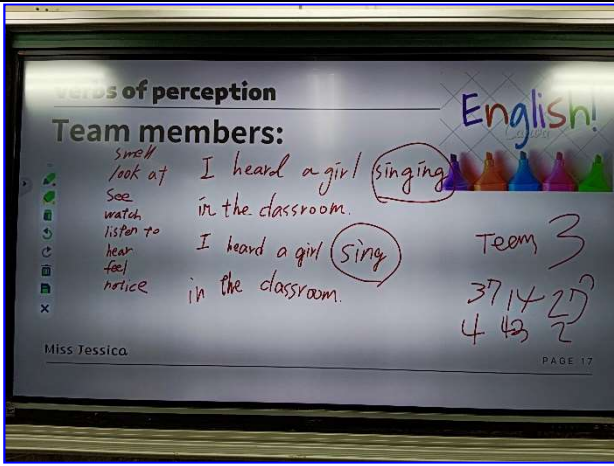 Verbs of perception
English!
Team members:
smell
look at
see
watch
listen to
hear
feel
notice
I heard a girl singing
in the classroom.
I heard a girl sing
in the classroom.
Team 3
37 14
4 2
Miss Jessica
PAGE 17